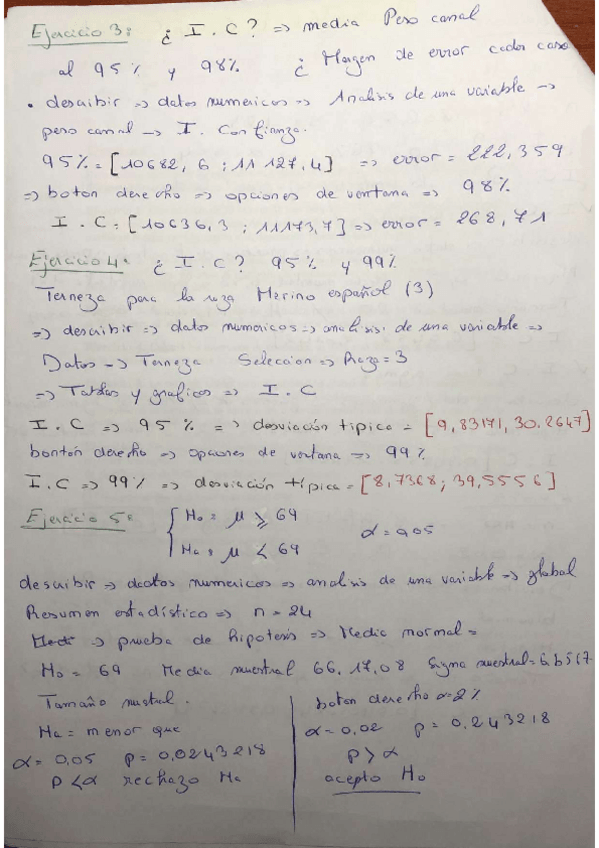 Ejercicio 3: ¿ I. C ? => media Peso canal
al 95% y 98% ¿ Margen de error cada caso
• describir => datos numericos => Analisis de una variable ->
peso canal -> I. Confianza.
95% = [10682,6 ; 11127,4] => error = 222,359
=> boton derecho => opciones de ventana => 98%
I. C = [10636,3 ; 11173,7] => error = 268,71
Ejercicio 4: ¿ I. C ? 95% y 99%
Terneza para la raza Merino español (3)
=> describir => datos numericos => analisis de una variable =>
Datos -> Terneza Seleccion => Raza = 3
=> Tablas y graficos => I. C
I. C => 95% => desviación tipica = [9,83171, 30.2647]
bontón derecho => opciones de ventana => 99%
I. C => 99% => desviación típica = [8,7368; 39,5556]
Ejercicio 5: Ho = μ ≥ 69
Ha = μ < 69
α = 0,05
describir => datos numericos => analisis de una variable => global
Resumen estadístico => n = 24
-> prueba de hipotesis => Media normal =
Ho = 69 Media muestral 66.1708 Sigma muestral =
Tamaño mustral.
Ha = menor que
α = 0,05 p = 0,0243218
P < α rechazo Ha
boton derecho α = 2%
α = 0,02 p = 0,243218
P > α
acepto Ho